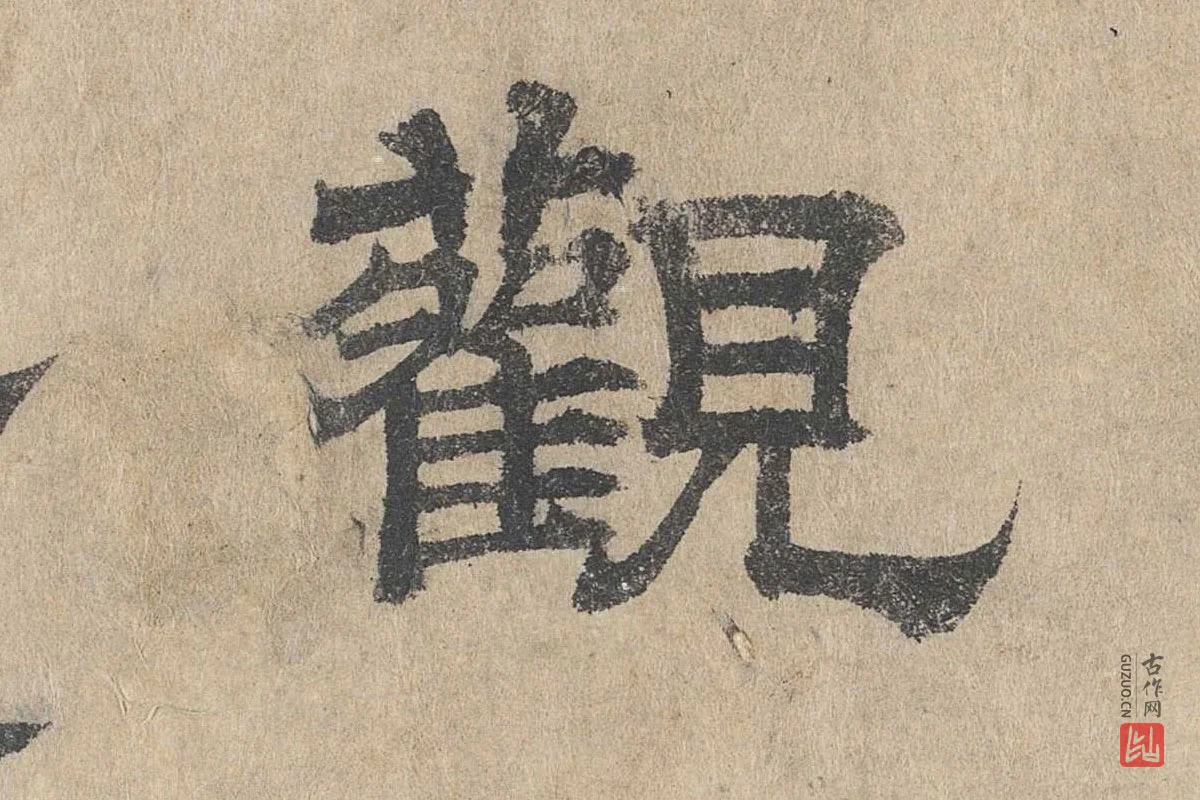 觀
古作网
GUZUO.CN